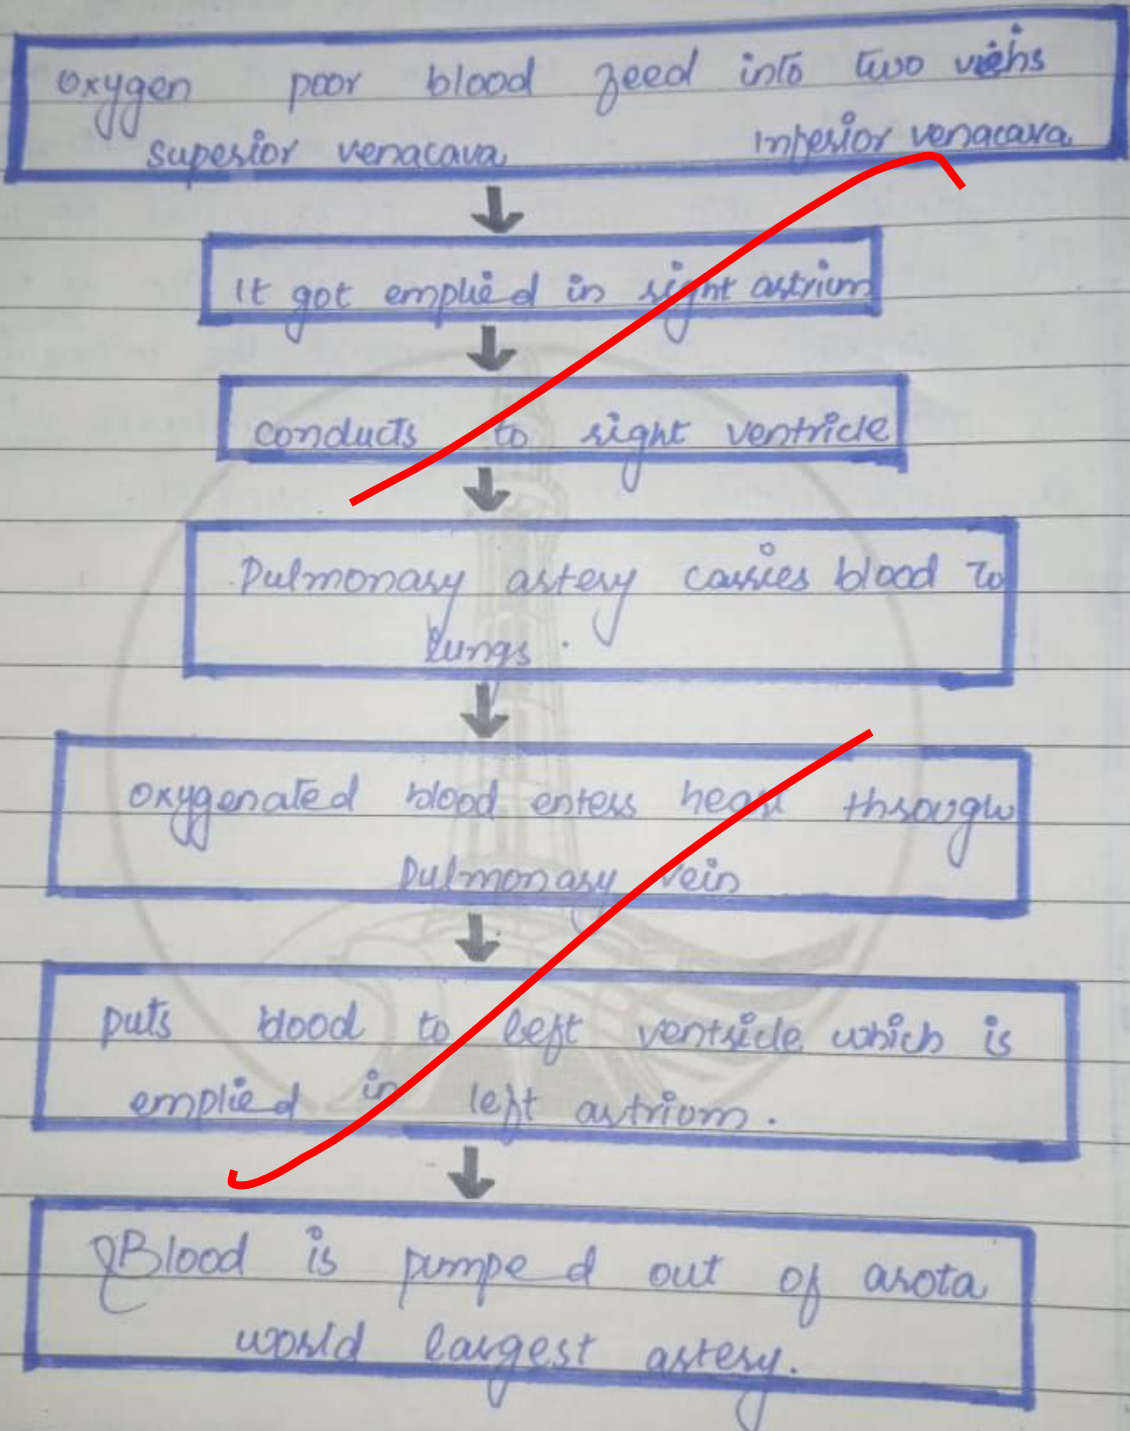 Oxygen poor blood feed into two viehs
Superior venacava Inferior venacava
It got emplied in right astrium
conducts to right ventricle
Pulmonary artery carries blood to
lungs.
Oxygenated blood enters heart through
Pulmonary vein
puts blood to left ventricle which is
emplied in left astriom.
Blood is pumped out of arota
world largest artery.